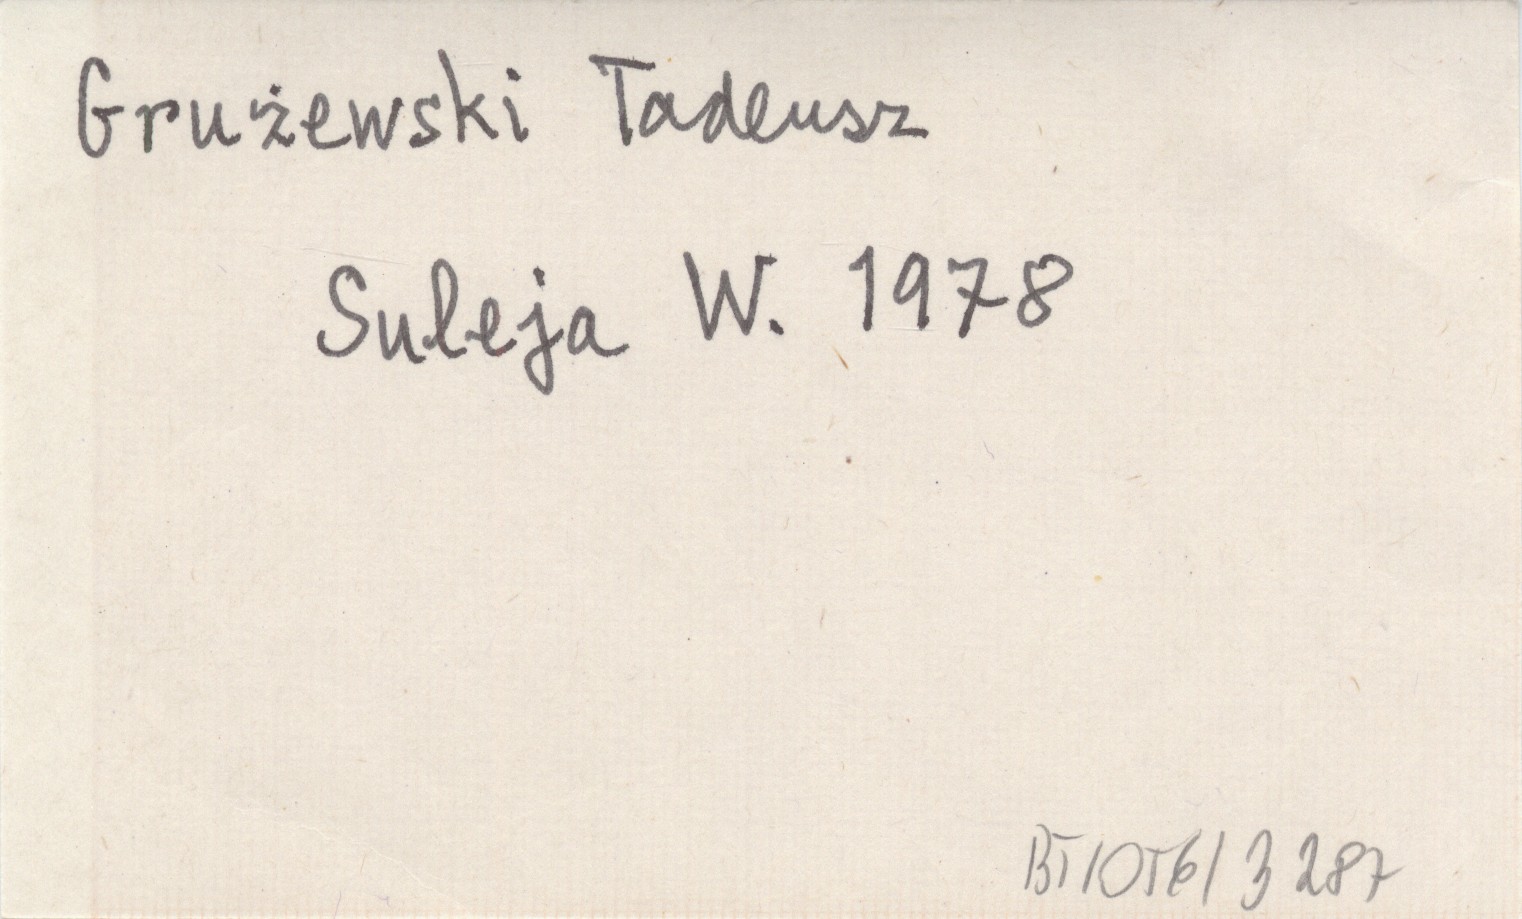 Grużewski Tadeusz
Suleja W. 1978
BT/OT6/3 287